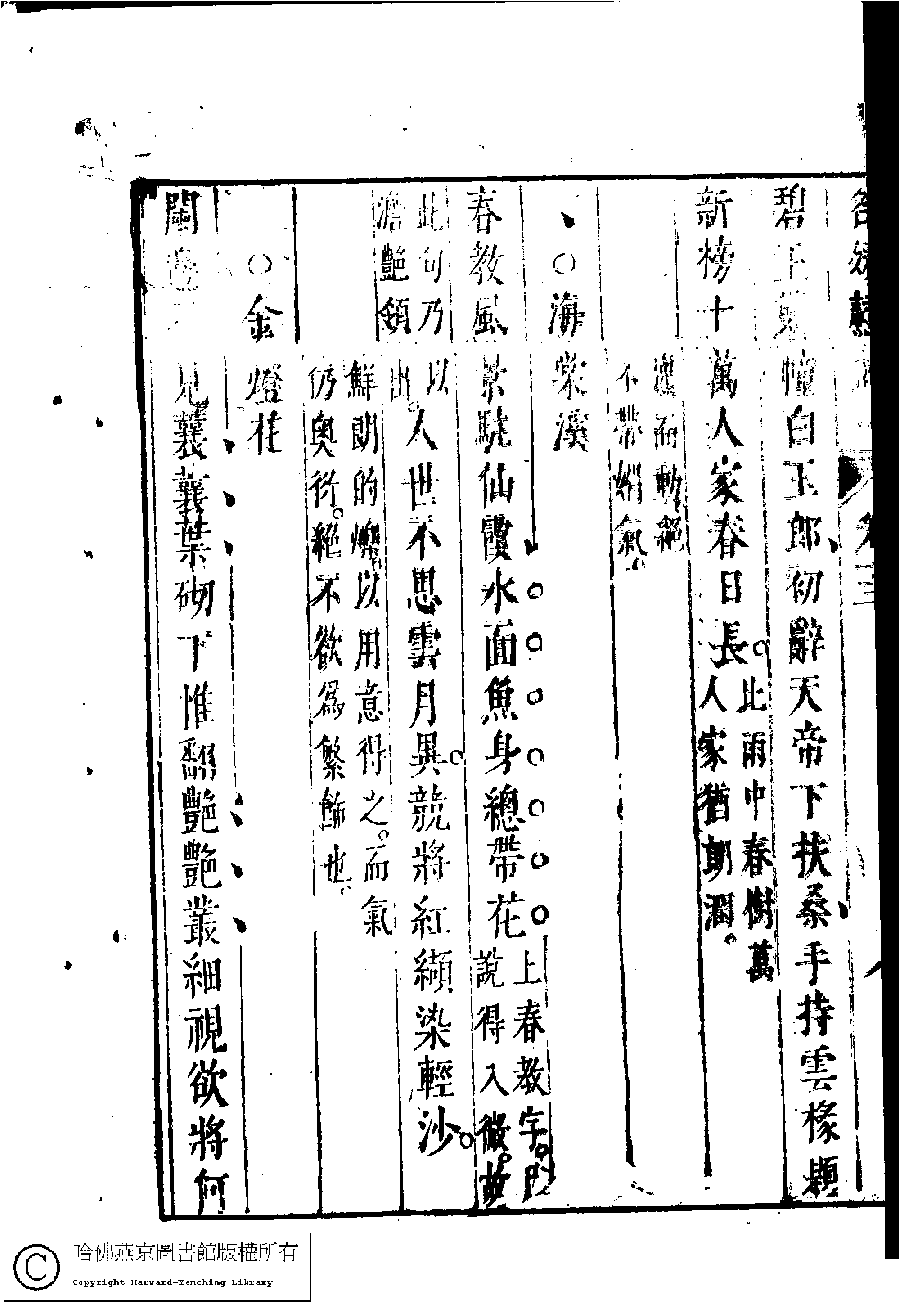 卷三
碧玉幢白玉郎初辭天帝下扶桑手持雲椽題
新榜十萬人家春日長。比雨中春樹萬
人家猶朗潤。
而動絕
不帶氣。
○海棠溪
春教風景駐仙霞水面魚身總帶花上春教字。
說得入微。故
此句乃以
澹艷領出。人世不思雲月異。競將紅纈染輕沙。
鮮朗的爍以用意得之。而氣
仍奧衍。絕不欲為繁飾也。
○金燈花
闌邊見蘘蘘葉砌下惟翻艷艷叢細視欲將何
哈佛燕京圖書館版權所有
Copyright Harvard-Yenching Library